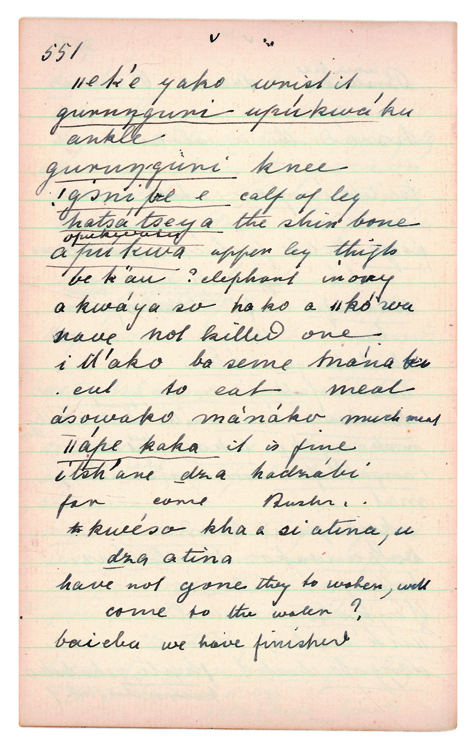 551
ǁek'e yako wrist it
gurunguni upúkwáku
ankle
gurunguni knee
ǃgɔni be e calf of leg
hatsá tseya the shin bone
apukwa upper leg thigh
be k'au ? elephant ivory
a kwáya so hako a ǁkó'wa
have not killed one
i tl'ako ba seme mána
cut to eat meat
ásowako mánáko much meat
ǁápe kaka it is fine
dza hadzábi
far come Bushm.
kwéso kha a si atina, u
dza atina
have not gone they to water, will
come to the water ?
baicha we have finished